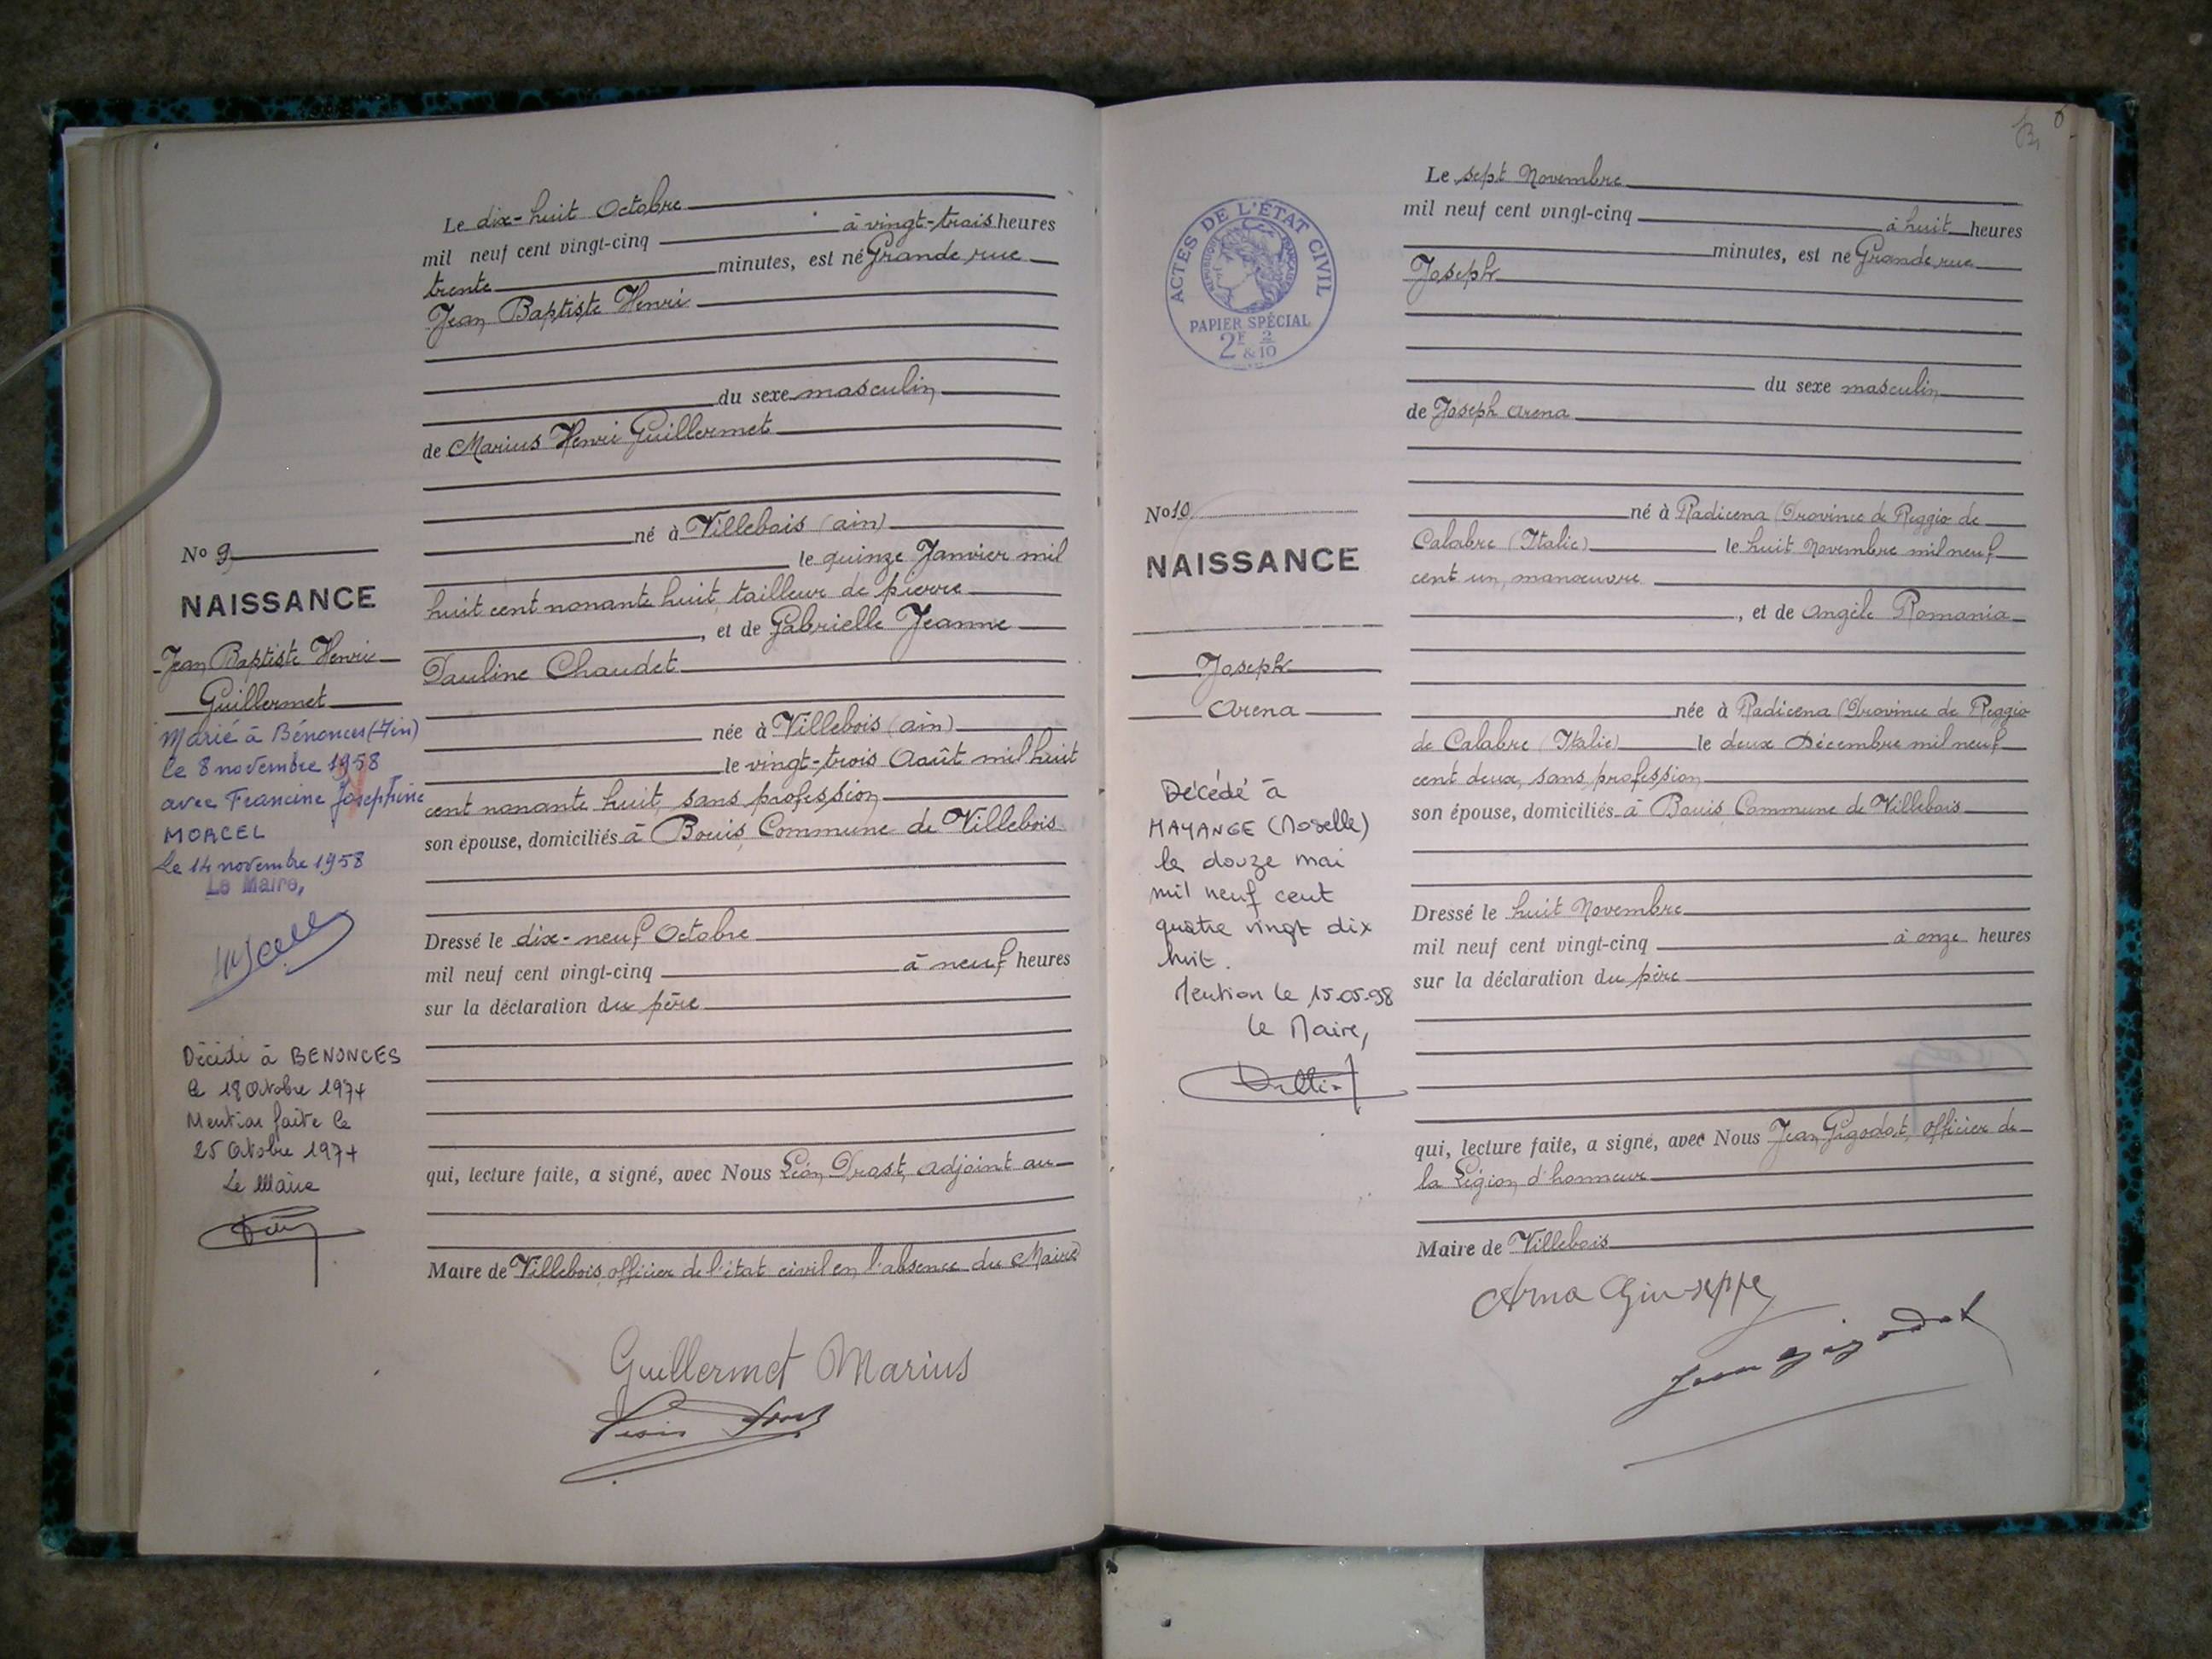 Le dix-huit Octobre
mil neuf cent vingt-cinq à vingt-trois heures
trente minutes, est né Grande rue
Jean Baptiste Henri
du sexe masculin
de Marius Henri Guillermet
né à Villebois (ain)
le quinze Janvier mil
huit cent nonante huit, tailleur de pierre
, et de Gabrielle Jeanne
Pauline Chaudet
née à Villebois (ain)
le vingt-trois Août mil huit
cent nonante huit, sans profession
son épouse, domiciliés à Bouis, Commune de Villebois
Dressé le dix-neuf Octobre
mil neuf cent vingt-cinq à neuf heures
sur la déclaration du père
qui, lecture faite, a signé, avec Nous Léon Drost, adjoint au
Maire de Villebois, officier de l'état civil en l'absence du Maire
Guillermet Marius
No 9
NAISSANCE
Jean Baptiste Henri
Guillermet
Marié à Bénonces (Ain)
le 8 novembre 1958
avec Francine Joséphine
MORCEL
Le 14 novembre 1958
Le Maire,
Décédé à BENONCES
le 18 Octobre 1974
Mention faite le
25 Octobre 1974
Le Maire
ACTES DE L'ÉTAT CIVIL
RÉPUBLIQUE FRANÇAISE
PAPIER SPÉCIAL
2F 2
&10
Le sept Novembre
mil neuf cent vingt-cinq à huit heures
minutes, est né Grande rue
Joseph
du sexe masculin
de Joseph Arena
né à Radicena (Province de Reggio de
Calabre (Italie) le huit Novembre mil neuf
cent un, manœuvre
, et de Angèle Romania
née à Radicena (Province de Reggio
de Calabre (Italie) le deux Décembre mil neuf
cent deux, sans profession
son épouse, domiciliés à Bouis Commune de Villebois
Dressé le huit Novembre
mil neuf cent vingt-cinq à onze heures
sur la déclaration du père
qui, lecture faite, a signé, avec Nous Jean Gigodot, officier de
la Légion d'honneur
Maire de Villebois
Arna Giuseppe
Jean Gigodot
No 10
NAISSANCE
Joseph
Arena
Décédé à
HAYANGE (Moselle)
le douze mai
mil neuf cent
quatre vingt dix
huit.
Mention le 15.05.98
le Maire,